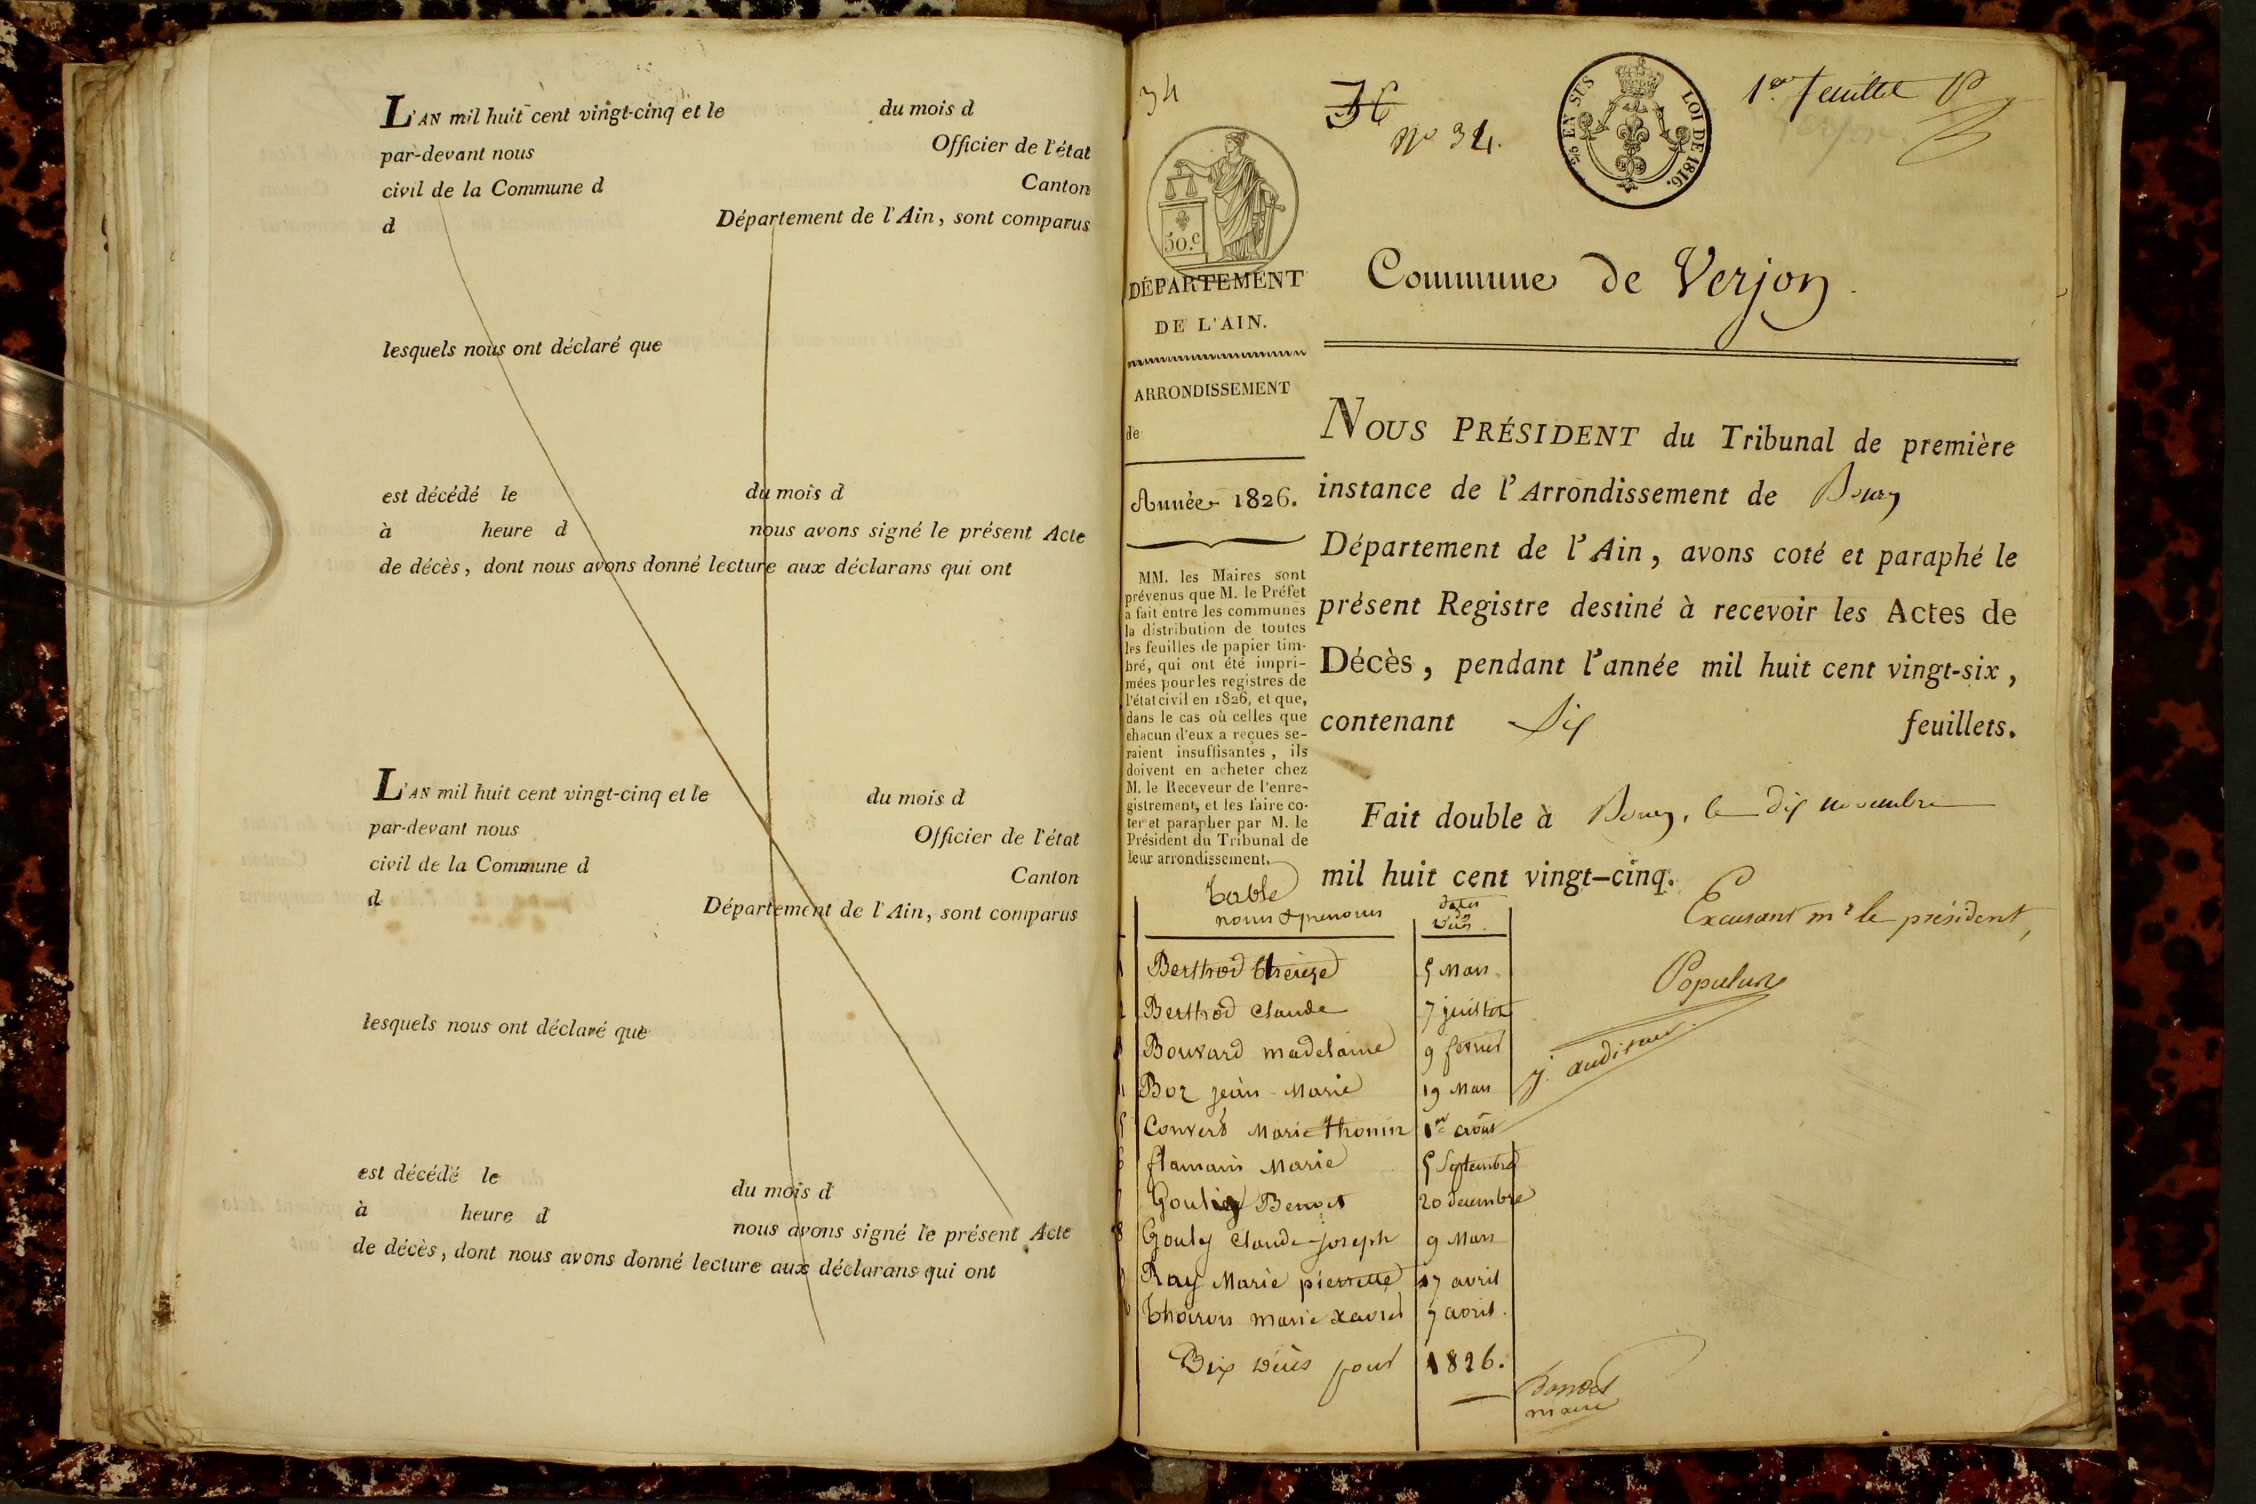 L'AN mil huit cent vingt-cinq et le du mois d
par-devant nous Officier de l'état
civil de la Commune d Canton
d Département de l'Ain, sont comparus
lesquels nous ont déclaré que
est décédé le du mois d
à heure d nous avons signé le présent Acte
de décès, dont nous avons donné lecture aux déclarans qui ont
L'AN mil huit cent vingt-cinq et le du mois d
par-devant nous Officier de l'état
civil de la Commune d Canton
d Département de l'Ain, sont comparus
lesquels nous ont déclaré que
est décédé le du mois d
à heure d nous avons signé le présent Acte
de décès, dont nous avons donné lecture aux déclarans qui ont
34
36
No 34.
EN SUS LOI DE 1816.
1er feuillet
50.c
DÉPARTEMENT
DE L'AIN.
ARRONDISSEMENT
de
Année 1826.
MM. les Maires sont
prévenus que M. le Préfet
a fait entre les communes
la distribution de toutes
les feuilles de papier tim-
bré, qui ont été impri-
mées pour les registres de
l'état civil en 1826, et que,
dans le cas où celles que
chacun d'eux a reçues se-
raient insuffisantes, ils
doivent en acheter chez
M. le Receveur de l'enre-
gistrement, et les faire co-
ter et parapher par M. le
Président du Tribunal de
leur arrondissement.
Commune de Verjon
NOUS PRÉSIDENT du Tribunal de première
instance de l'Arrondissement de Bourg
Département de l'Ain, avons coté et paraphé le
présent Registre destiné à recevoir les Actes de
Décès, pendant l'année mil huit cent vingt-six,
contenant Six feuillets.
Fait double à Bourg, le dix novembre
mil huit cent vingt-cinq.
Excusant mr le président,
Populus
j. auditeur
table
noms & prenoms dates
Berthod thérèze 5 Mars
Berthod Claude 7 juillet
Bouvard madelaine 9 fevrier
Boz jean-Marie 19 Mars
Convert Marie thonin 1er août
flamain Marie 5 Septembre
Gouly Benoit 20 decembre
8 Gouly Claude-joseph 9 Mars
Ray Marie pierrette 17 avril
Thoiron marie xavier 7 avril.
Dix décès pour 1826.
maire